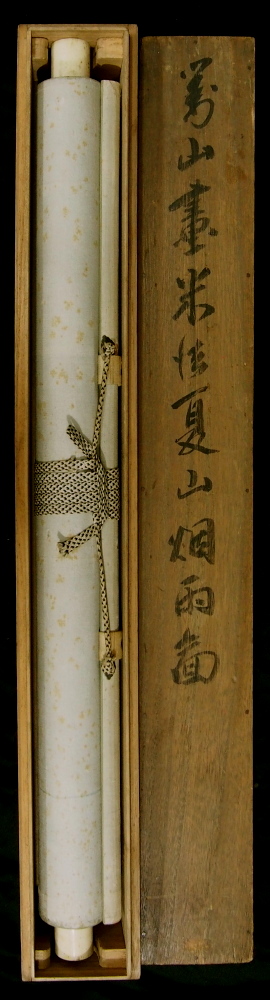 萬山畫米法夏山烟雨圖